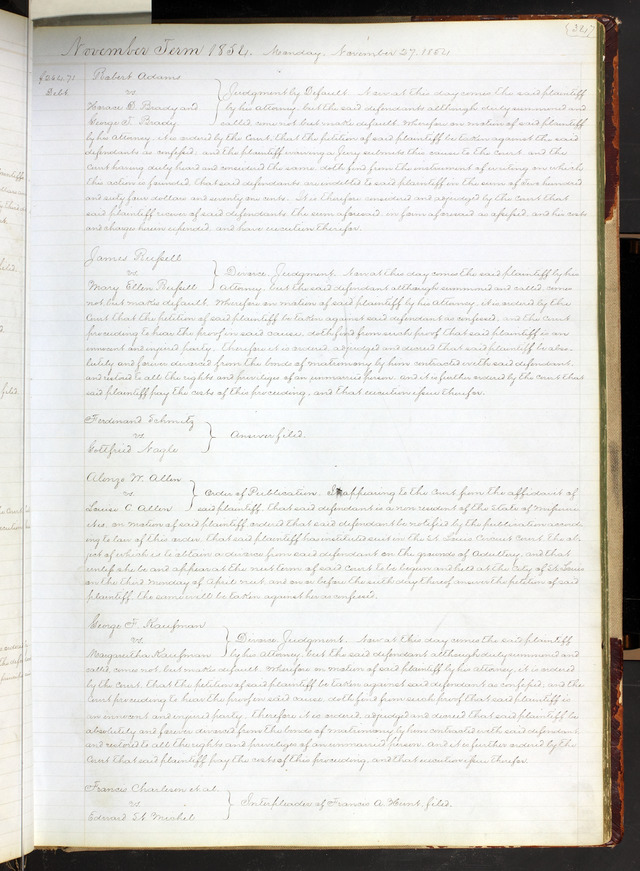 (347)
November Term 1854. Monday, November 27. 1854
$264.71
Debt.
Robert Adams
vs
Horace D. Brady and
George T. Brady
Judgment by Default. Now at this day comes the said plaintiff
by his attorney, but the said defendants although duly summoned and
called come not but make default. Wherefore on motion of said plaintiff
by his attorney it is ordered by the Court, that the petition of said plaintiff be taken against the said
defendants as confessed, and the plaintiff waiving a Jury submits this cause to the Court, and the
Court having duly heard and considered the same doth find from the instrument of writing on which
this action is founded, that said defendants are indebted to said plaintiff in the sum of two hundred
and sixty four dollars and seventy one cents. It is therefore considered and adjudged by the Court that
said plaintiff recover of said defendants the sum aforesaid, in form aforesaid as assessed, and his costs
and charges herein expended, and have execution therefor.
James Russell
vs
Mary Ellen Russell
Divorce Judgment. Now at this day comes the said plaintiff by his
attorney, but the said defendant although summoned and called comes
not but makes default. Wherefore on motion of said plaintiff by his attorney, it is ordered by the
Court that the petition of said plaintiff be taken against said defendant as confessed, and the Court
proceeding to hear the proof in said cause, doth find from such proof that said plaintiff is an
innocent and injured party. Therefore it is ordered adjudged and decreed that said plaintiff be abso-
lutely and forever divorced from the bonds of matrimony by him contracted with said defendant,
and restored to all the rights and privileges of an unmarried person. and it is further ordered by the Court that
said plaintiff pay the costs of this proceeding, and that execution issue therefor.
Ferdinand Schmitz
vs
Gottfried Nagle
Answer filed.
Alonzo W. Allen
vs
Louisa C. Allen
Order of Publication. It appearing to the Court from the affidavit of
said plaintiff, that said defendant is a non resident of the State of Missouri
it is, on motion of said plaintiff ordered that said defendant be notified by the publication accord-
ing to law of this order, that said plaintiff has instituted suit in the St. Louis Circuit Court, the ob-
ject of which is to obtain a divorce from said defendant on the grounds of Adultery, and that
unless she be and appear at the next term of said Court to be begun and held at the City of St. Louis
on the third Monday of April next, and on or before the sixth day thereof answer the petition of said
plaintiff the same will be taken against her as confessed.
George F. Kaufman
vs
Margaretha Kaufman
Divorce Judgment. Now at this day comes the said plaintiff
by his attorney, but the said defendant although duly summoned and
called, comes not, but makes default. Wherefore on motion of said plaintiff by his attorney, it is ordered
by the Court, that the petition of said plaintiff be taken against said defendant as confessed, and the
Court proceeding to hear the proof in said cause, doth find from such proof that said plaintiff is
an innocent and injured party. Therefore it is ordered, adjudged and decreed that said plaintiff be
absolutely and forever divorced from the bonds of matrimony by him contracted with said defendant
and restored to all the rights and privileges of an unmarried person. And it is further ordered by the
Court that said plaintiff pay the costs of this proceeding, and that execution issue therefor.
Francis Charleson et al.
vs
Edward St. Michel
Interpleader of Francis A. Hunt, filed.